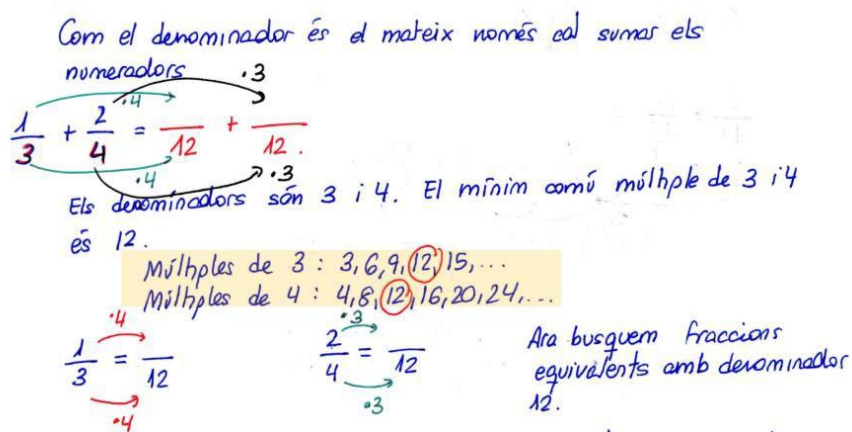 Com el denominador és el mateix només cal sumar els
numeradors
·4 ·3
1/3 + 2/4 = /12 + /12.
·4 ·3
Els denominadors són 3 i 4. El mínim comú múltiple de 3 i 4
és 12.
Múltiples de 3 : 3,6,9,12,15,...
Múltiples de 4 : 4,8,12,16,20,24,...
·4 ·3
1/3 = /12 2/4 = /12
·4 ·3
Ara busquem fraccions
equivalents amb denominador
12.